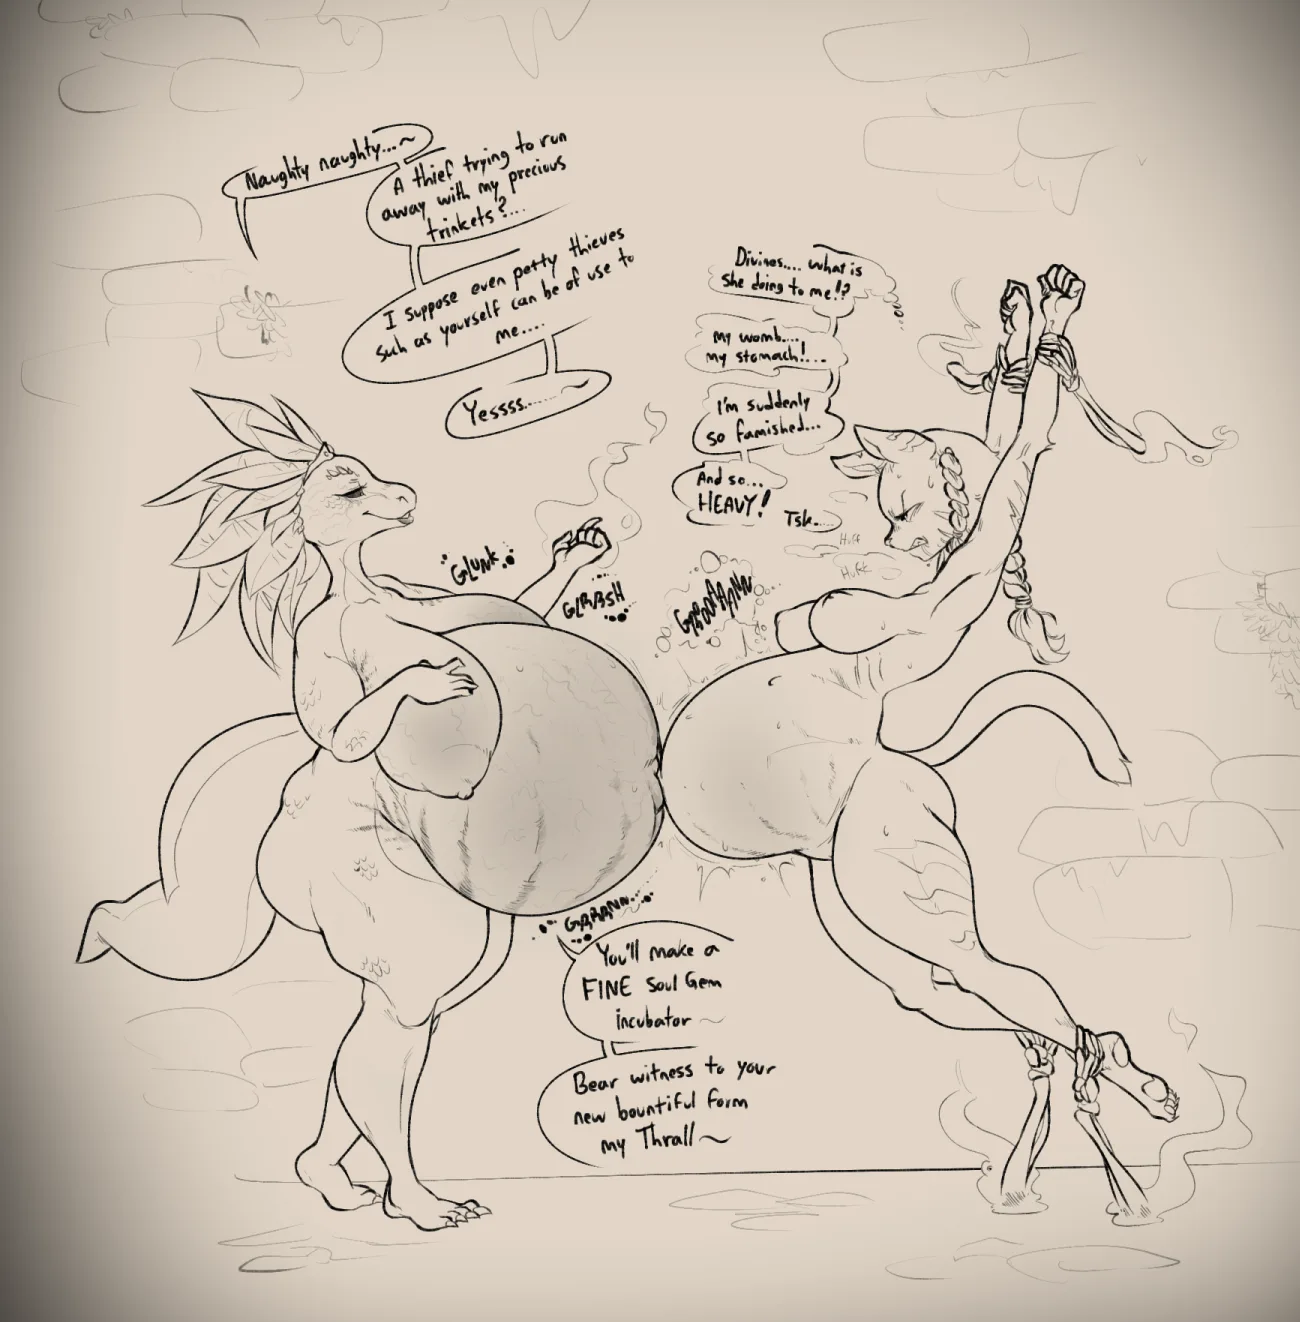 Naughty naughty...~
A thief trying to run
away with my precious
trinkets?...
I suppose even petty thieves
such as yourself can be of use to
me....
Yessss......~
Divines.... what is
she doing to me!?
my womb....
my stomach!...
I'm suddenly
so famished...
And so...
HEAVY!
Tsk...
Huff
Huff
GLUNK
GLRRSH
GRRNAAANN
GRRRNN...
You'll make a
FINE Soul Gem
incubator ~
Bear witness to your
new bountiful form
my Thrall~